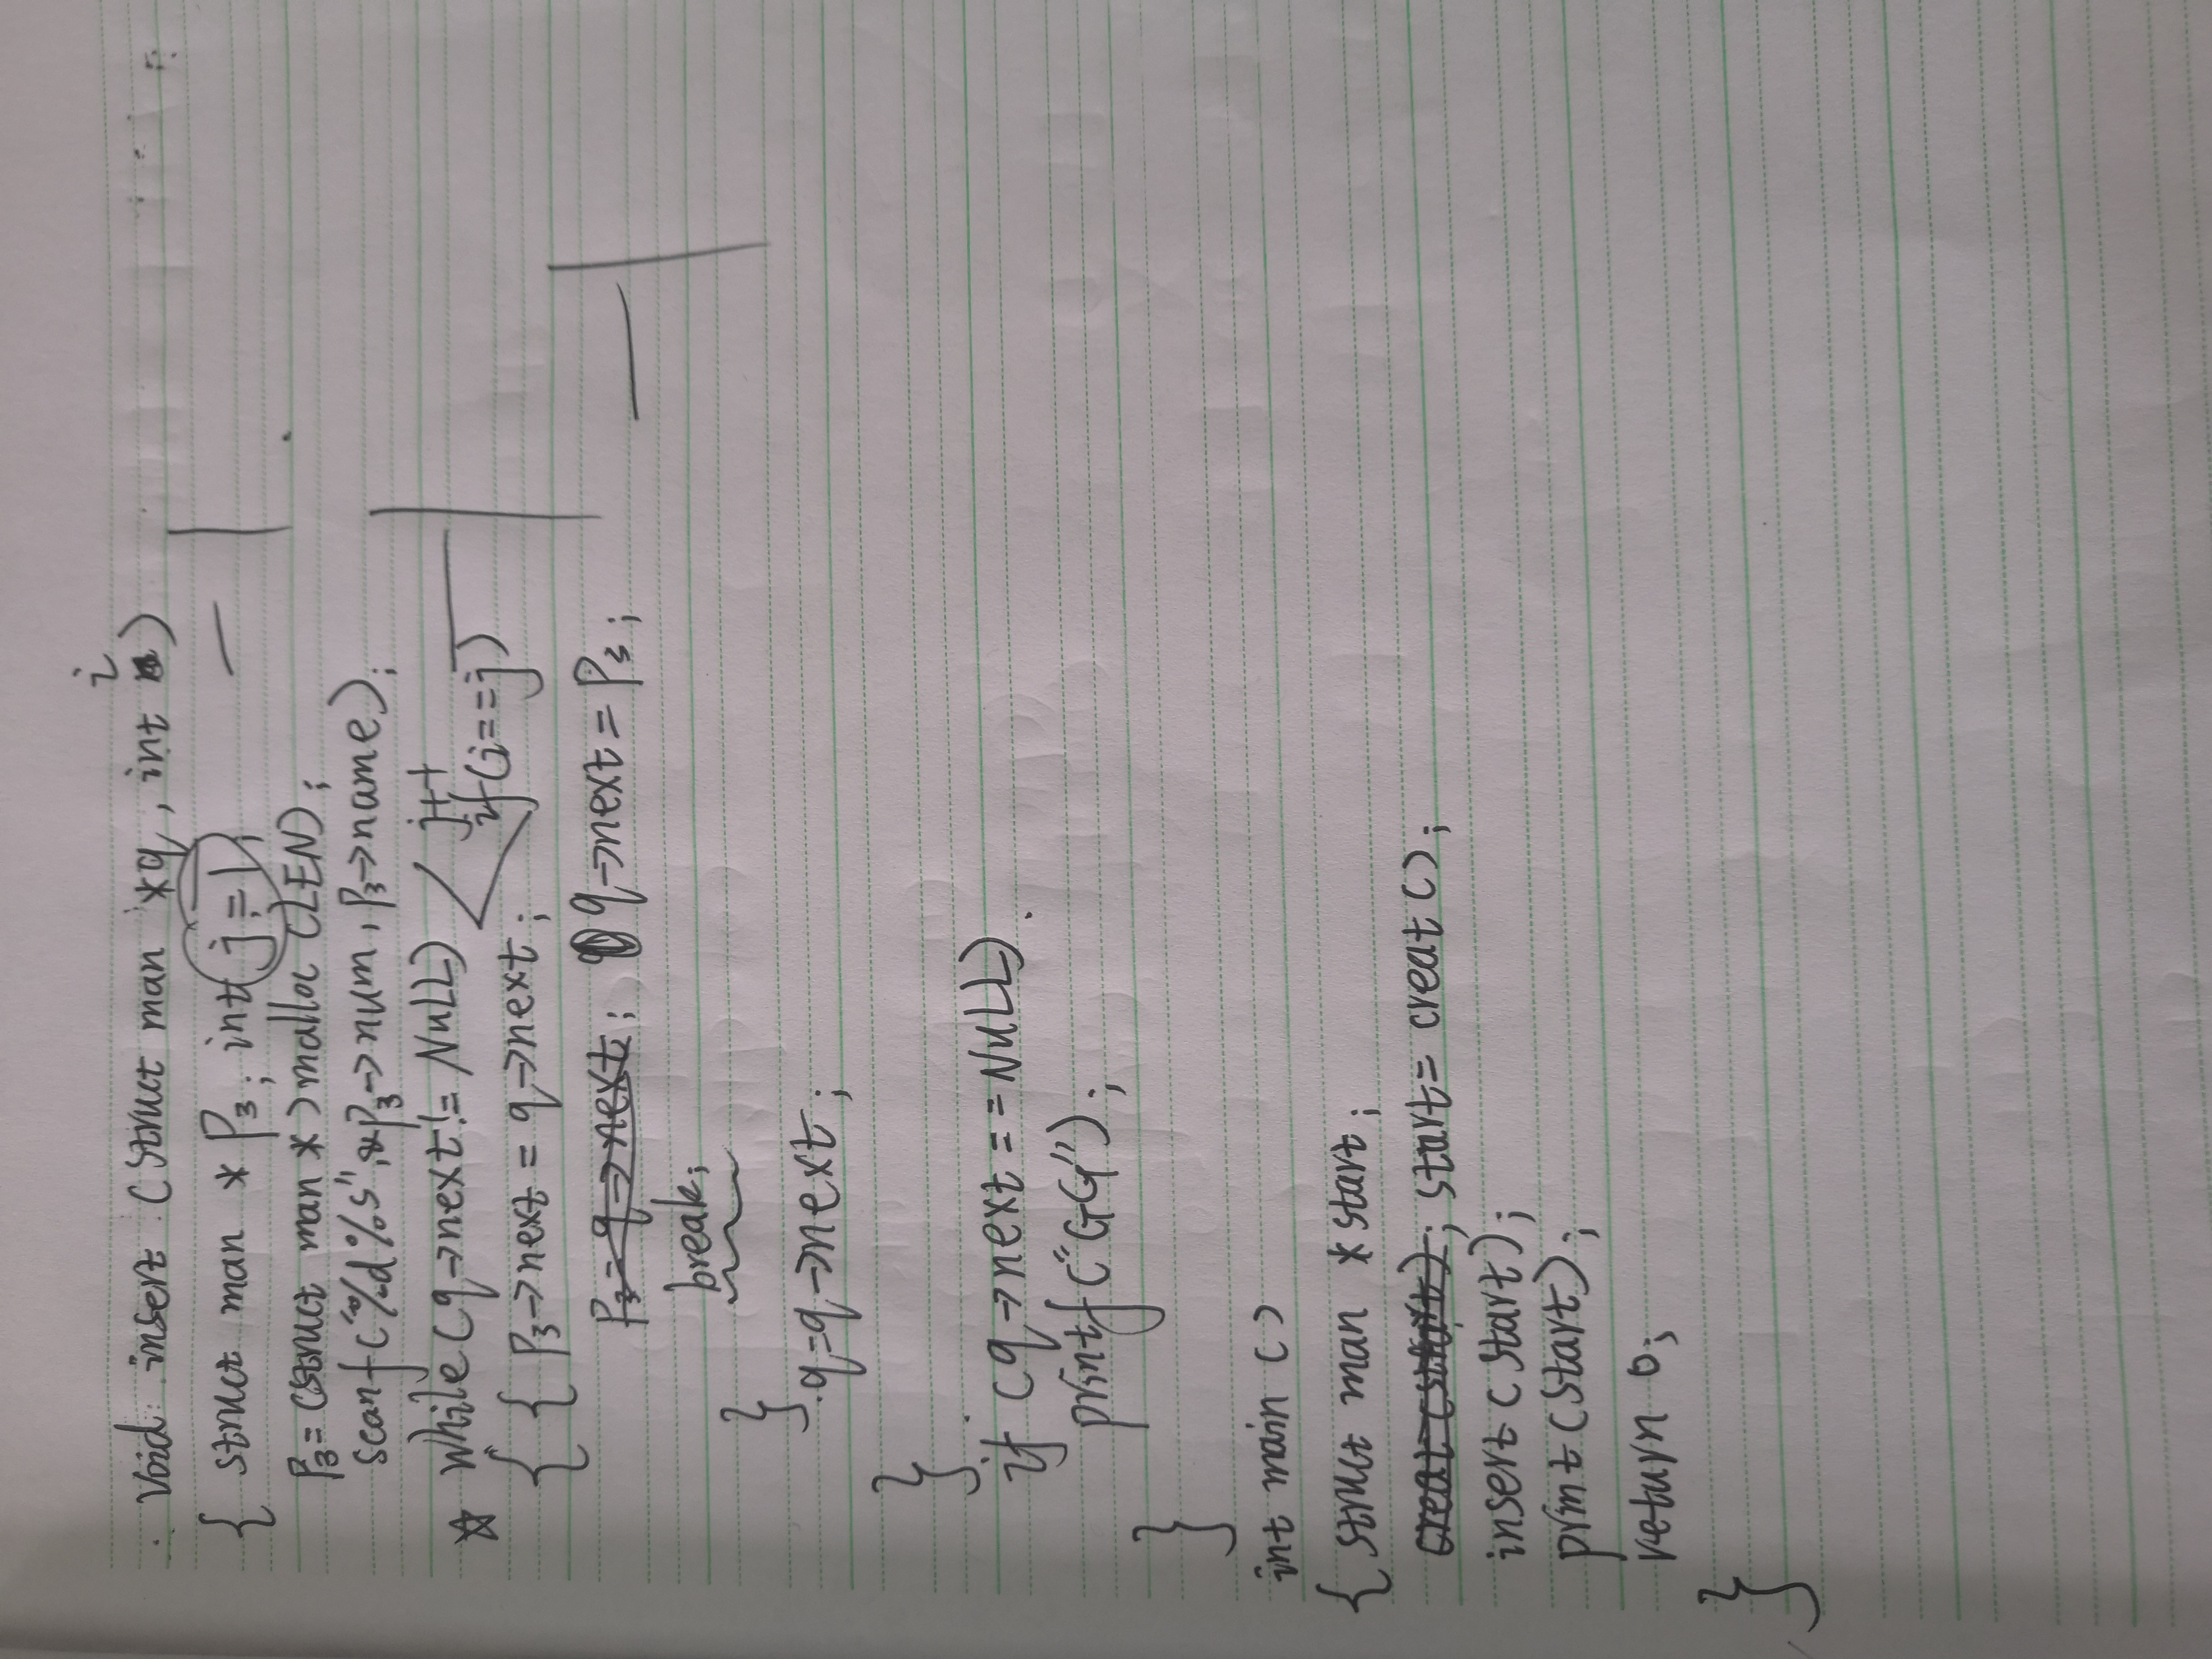 i
Void insert (struct man *q, int )
{ struct man * P3; int j=1;
P3=(struct man *)malloc(LEN);
scanf("%d%s",&P3->num, P3->name);
while(q->next!= NULL)
j++
if(i==j)
{ { P3->next = q->next;
P3=q->next; q->next = P3;
break;
}
q=q->next;
}
if (q->next==NULL)
printf("GG");
}
int main ()
{ struct man *start;
creat(start); start= creat();
insert(start);
print(start);
return 0;
}